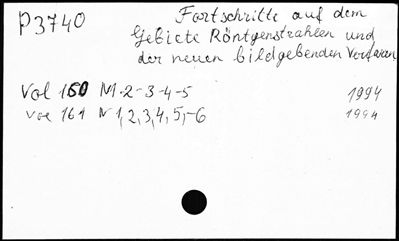 P3740 Fortschritte auf dem
Gebiete Röntgenstrahlen und
der neuen bildgebenden Verfaren
Vol 160 N. 2-3-4-5 1994
Vol 161 N 1,2,3,4,5,-6 1994